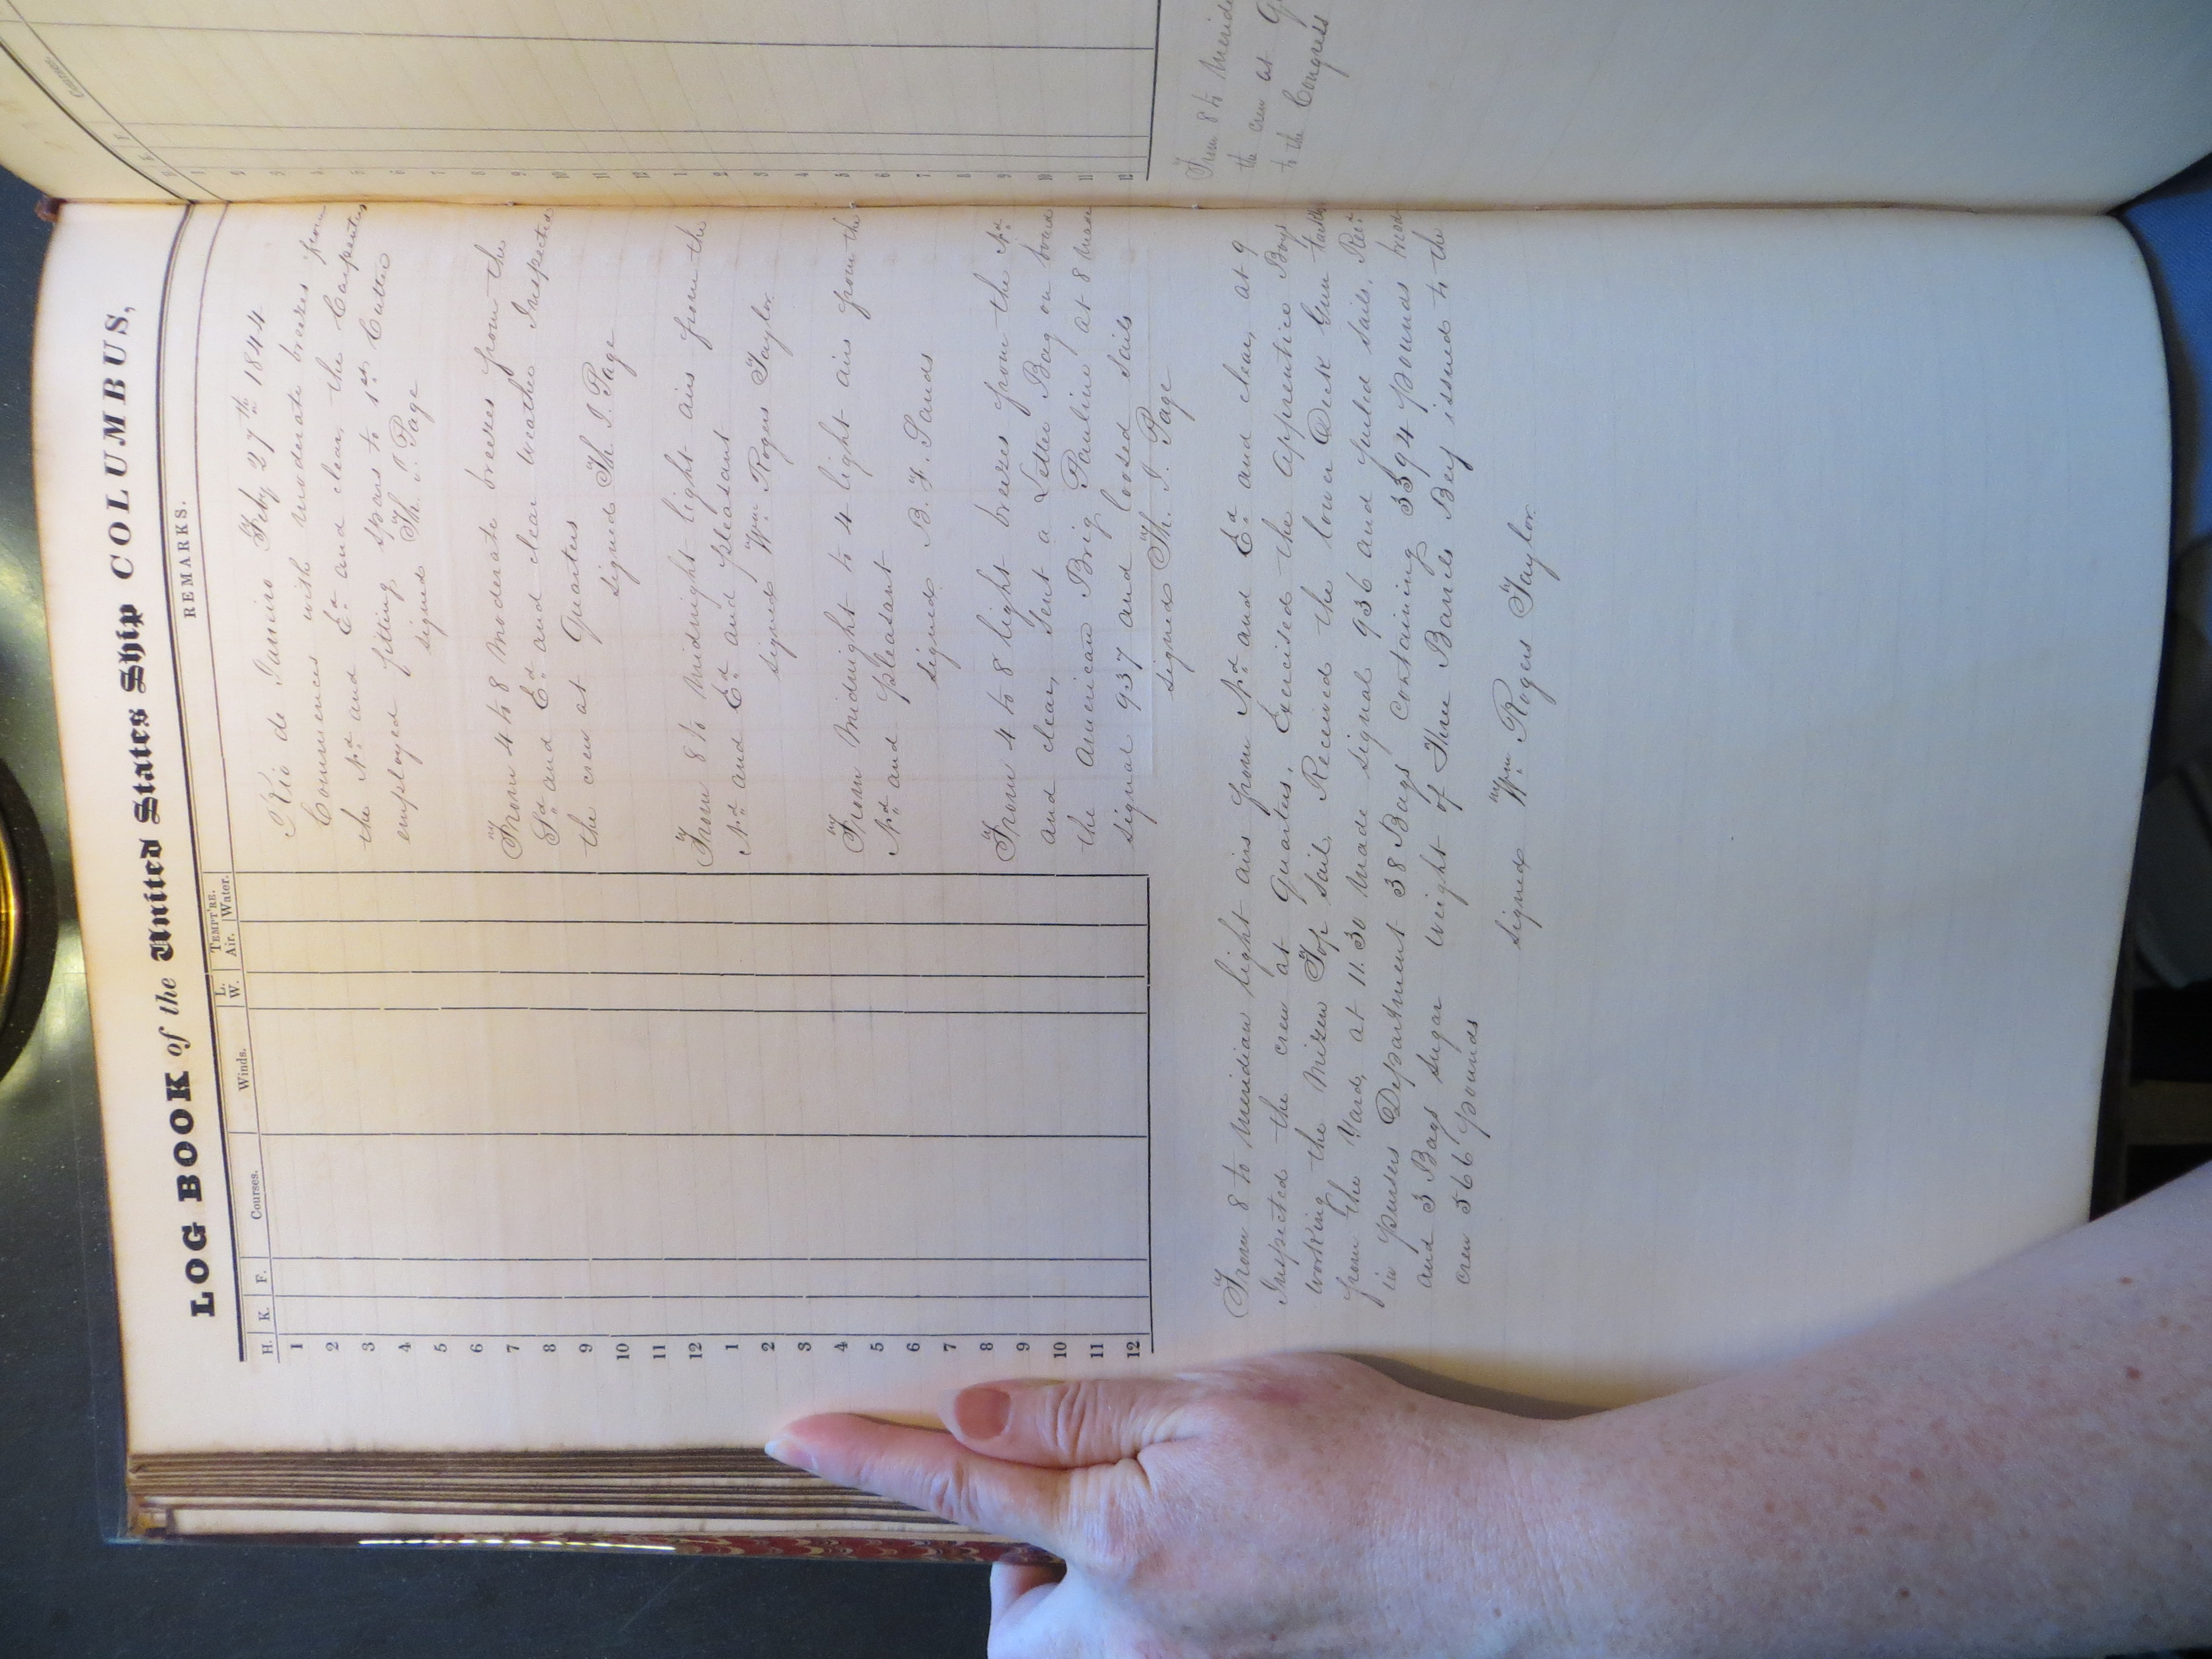 LOG BOOK of the United States Ship COLUMBUS,
H. K. F. Courses. Winds. L. W. TEMPT'RE. Air. Water. REMARKS.
1
2
3
4
5
6
7
8
9
10
11
12
1
2
3
4
5
6
7
8
9
10
11
12
Rio de Janeiro Feby 27th 1844
Commences with moderate breezes from
the Nd and Ed and clear, the Carpenters
employed fitting spars to 1st Cutter
signed Th. J. Page
From 4 to 8 moderate breezes from the
Sd and Ed and clear weather Inspected
the crew at Quarters
signed Th. J. Page
From 8 to Midnight light airs from the
Nd and Ed and pleasant
signed Wm. Rogers Taylor
From Midnight to 4 light airs from the
Nd and pleasant
signed B. F. Sands
From 4 to 8 light breezes from the Nd
and clear, Sent a Letter Bag on board
the American Brig Pauline, at 8 made
signal 937 and loosed sails
signed Th. J. Page
From 8 to Meridian light airs from Nd and Ed and clear, at 9
Inspected the crew at Quarters, Exercised the Apprentice Boys
working the Mizen Top sail, Received the lower Deck Gun
from the Yard, at 11.30 made signal 936 and furled sails. Recd
in Pursers Department 38 Bags Containing 3394 pounds bread
and 3 Bags sugar weight of Three Barrels Beef issued to the
crew 566 pounds
signed Wm. Rogers Taylor
1
2
3
4
5
6
7
8
9
10
11
12
1
2
3
4
5
6
7
8
9
10
11
12
From 8 to Meridian
the crew at
to the Congress